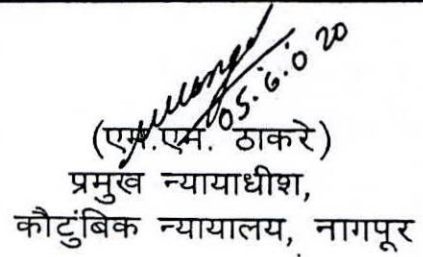 05.6.020
(एम.एम. ठाकरे)
प्रमुख न्यायाधीश,
कौटुंबिक न्यायालय, नागपूर